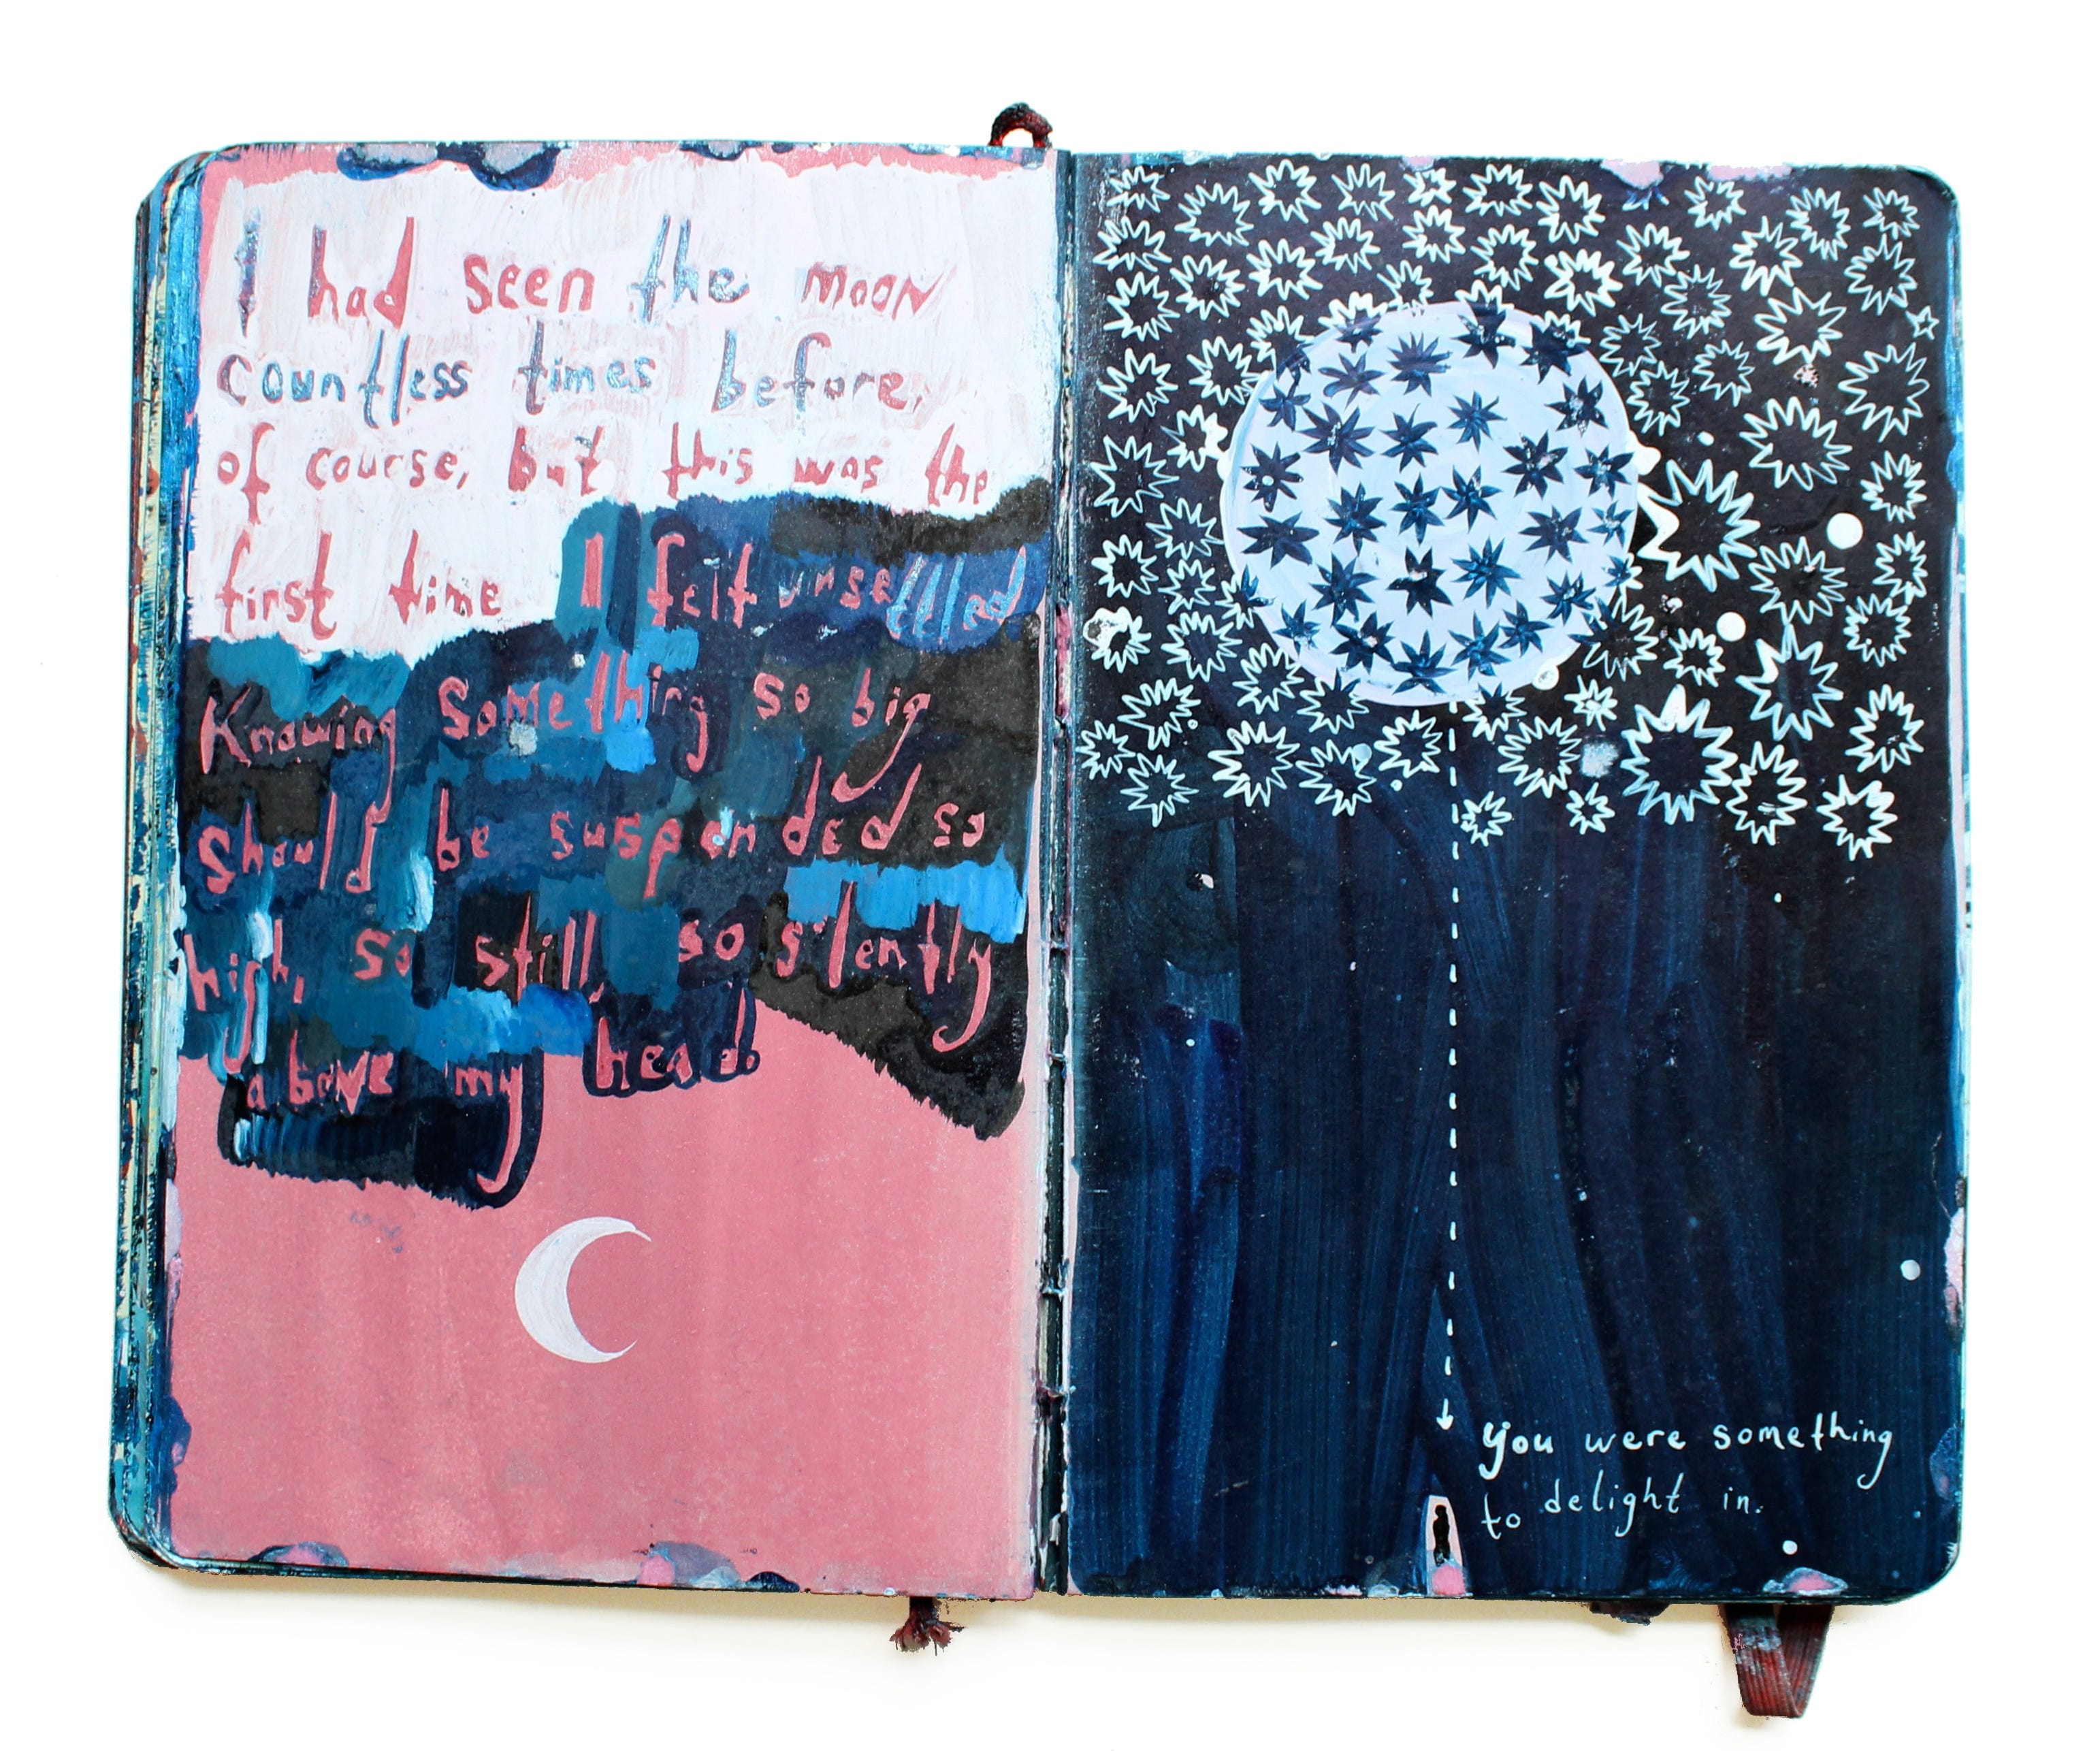 I had seen the moon
countless times before,
of course, but this was the
first time I felt unsettled
Knowing something so big
should be suspended so
high, so still, so silently
above my head.
You were something
to delight in.